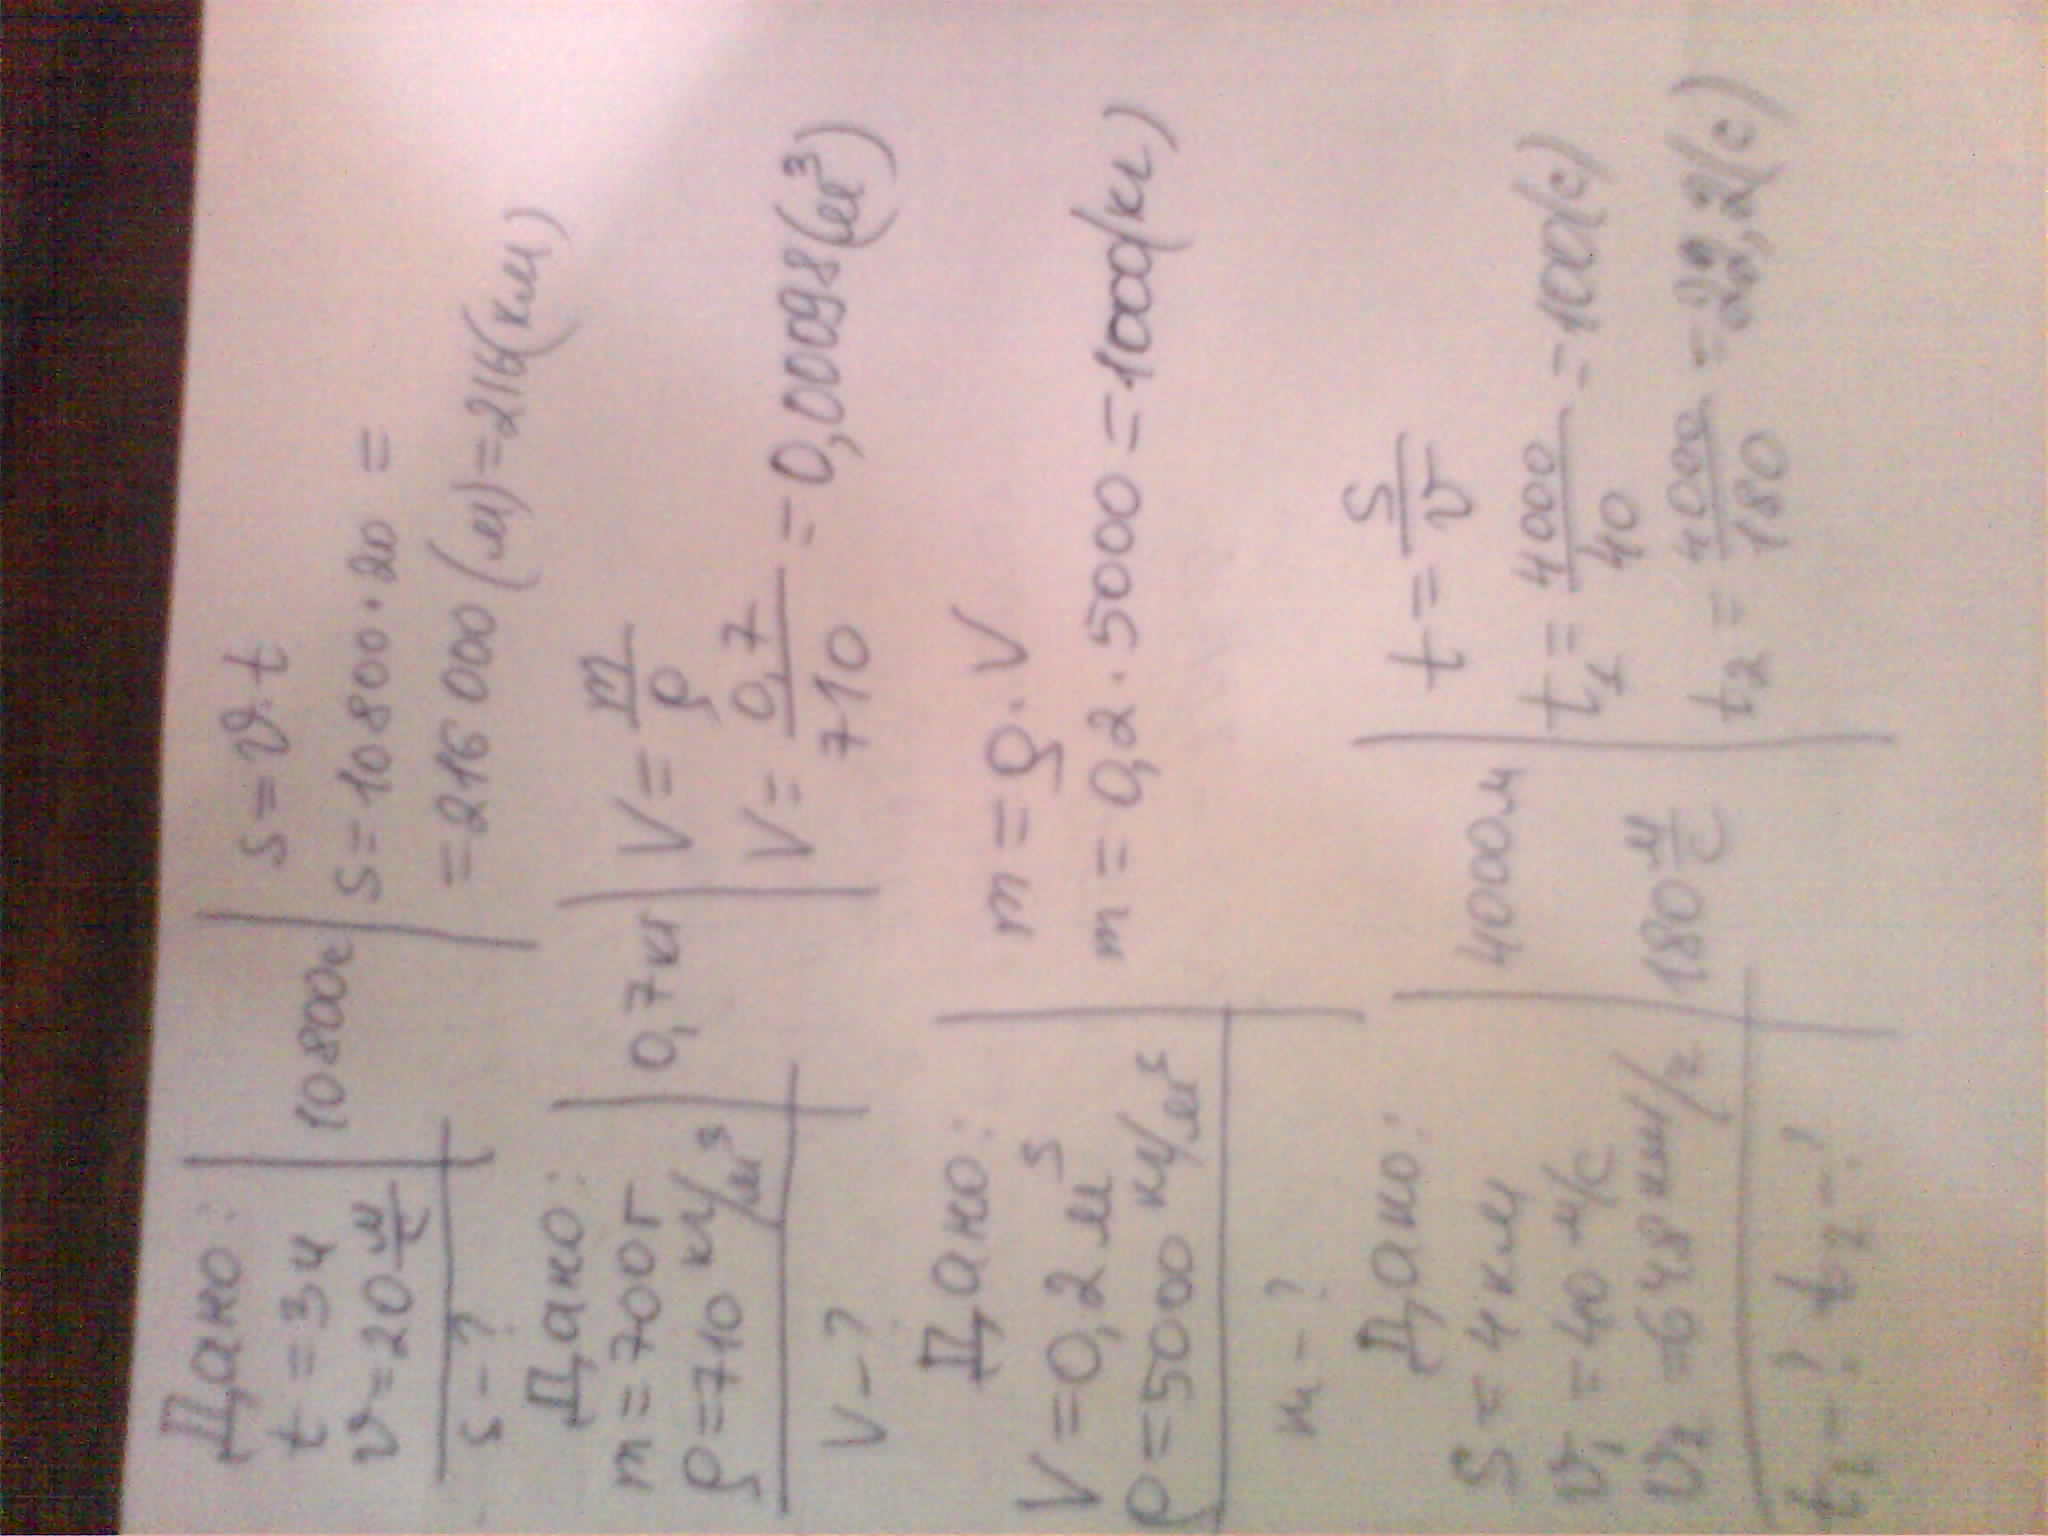 Дано:
t = 3ч
v = 20 м/с
s - ?
10800с
s = v · t
s = 10800 · 20 =
= 216 000 (м) = 216 (км)
Дано:
m = 700г
ρ = 710 кг/м³
V - ?
0,7 кг
V = m/ρ
V = 0,7/710 = 0,00098 (м³)
Дано:
V = 0,2 м³
ρ = 5000 кг/м³
m - ?
m = ρ · V
m = 0,2 · 5000 = 1000 (кг)
Дано:
S = 4 км
v₁ = 40 м/с
v₂ = 648 км/ч
t₁ - ? t₂ - ?
4000м
180 м/с
t = S/v
t₁ = 4000/40 = 100 (с)
t₂ = 4000/180 = 22,2 (с)